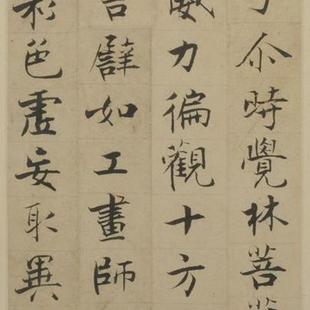 尒時覺林菩
威力徧觀十方
言譬如工畫師
彩色虛妄取異